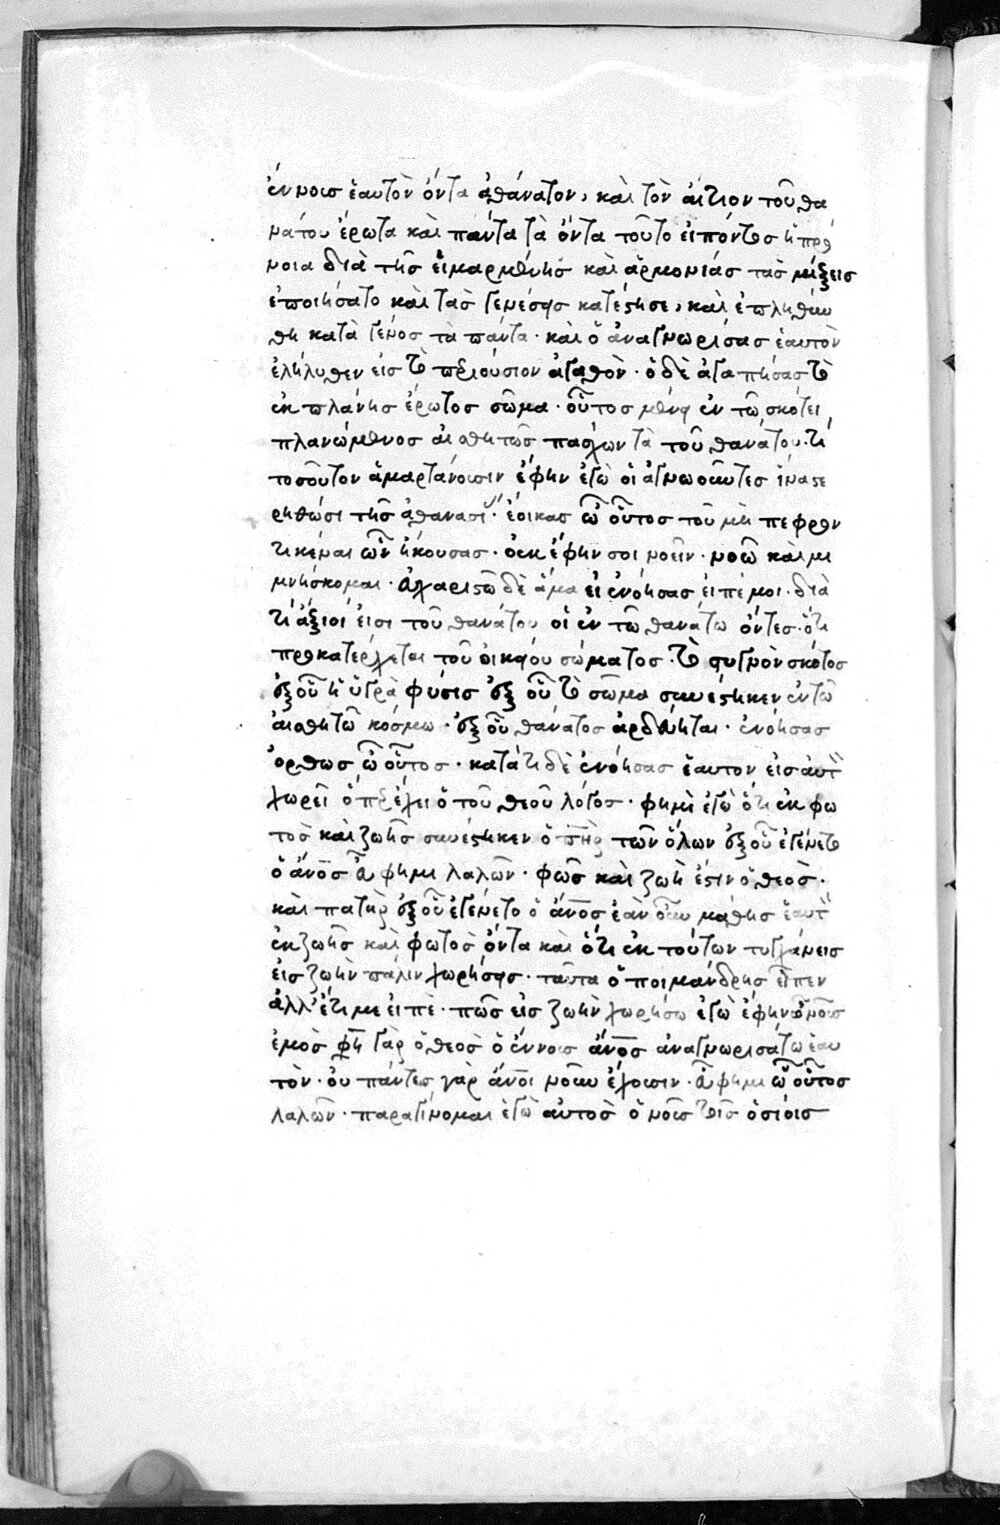 ἔννους ἑαυτὸν ὄντα ἀθάνατον, καὶ τὸν αἴτιον τοῦ θα
νάτου ἔρωτα καὶ πάντα τὰ ὄντα τοῦτο εἰπόντος ἡ πρό
νοια διὰ τῆς εἱμαρμένης καὶ ἁρμονίας τὰς μίξεις
ἐποιήσατο καὶ τὰς γενέσεις κατέστησε, καὶ ἐπληθύν
θη κατὰ γένος τὰ πάντα · καὶ ὁ ἀναγνωρίσας ἑαυτὸν
ἐλήλυθεν εἰς τὸ περιούσιον ἀγαθὸν · ὁ δὲ ἀγαπήσας τὸ
ἐκ πλάνης ἔρωτος σῶμα · οὗτος μένει ἐν τῶ σκότει
πλανώμενος αἰσθητῶς πάσχων τὰ τοῦ θανάτου · τί
τοσοῦτον ἁμαρτάνουσιν ἔφην ἐγὼ οἱ ἀγνοοῦντες ἵνα στε
ρηθῶσι τῆς ἀθανασί · ἔοικας ὦ οὗτος τοῦ μὴ πεφρον
τικέναι ὧν ἤκουσας · οὐκ ἔφην σοι νοεῖν · νοῶ καὶ μι
μνήσκομαι · εὐχαριστῶ δὲ ἅμα εἰ ἐνόησας εἰπέ μοι · διὰ
τί ἄξιοί εἰσι τοῦ θανάτου οἱ ἐν τῶ θανάτω ὄντες · ὅτι
προκατέρχεται τοῦ οἰκείου σώματος · τὸ στυγνὸν σκότος
ἐξ οὗ ἡ ὑγρὰ φύσις ἐξ οὗ τὸ σῶμα συνέστηκεν ἐν τῶ
αἰσθητῶ κόσμω · ἐξ οὗ θάνατος ἀρδεύεται · ἐνόησας
ὀρθῶς ὦ οὗτος · κατὰ τί δὲ ἐνόησας ἑαυτον εἰς αὐτ
χωρεῖ ὅπερ ἔχει ὁ τοῦ θεοῦ λόγος · φημὶ ἐγὼ ὅτι ἐκ φω
τὸς καὶ ζωῆς συνέστηκεν ὁ πηρ τῶν ὅλων ἐξ οὗ ἐγένετο
ὁ ἄνος εὖ φημι λαλῶν · φῶς καὶ ζωή ἐστιν ὁ θεὸς ·
καὶ πατὴρ ἐξ οὗ ἐγένετο ὁ ἄνος ἐὰν οὖν μάθης ἑαυτ
ἐκ ζωῆς καὶ φωτὸς ὄντα καὶ ὅτι ἐκ τούτων τυγχάνεις
εἰς ζωὴν πάλιν χωρήσεις · ταῦτα ὁ ποιμάνδρης εἶπεν
ἀλλ' ἔτι μι εἰπὲ · πῶς εἰς ζωὴν χωρήσω ἐγὼ ἔφην ὦ νοῦς
ἐμὸς φη γὰρ ὁ θεὸς ὁ ἔννους ἄνος ἀναγνωρισάτω ἑαυ
τὸν · οὐ πάντες γὰρ ἄνοι νοῦν ἔχουσιν · εὖ φημι ὦ οὗτος
λαλῶν · παραγίνομαι ἐγὼ αὐτὸς ὁ νοῦς τοῖς ὁσίοις